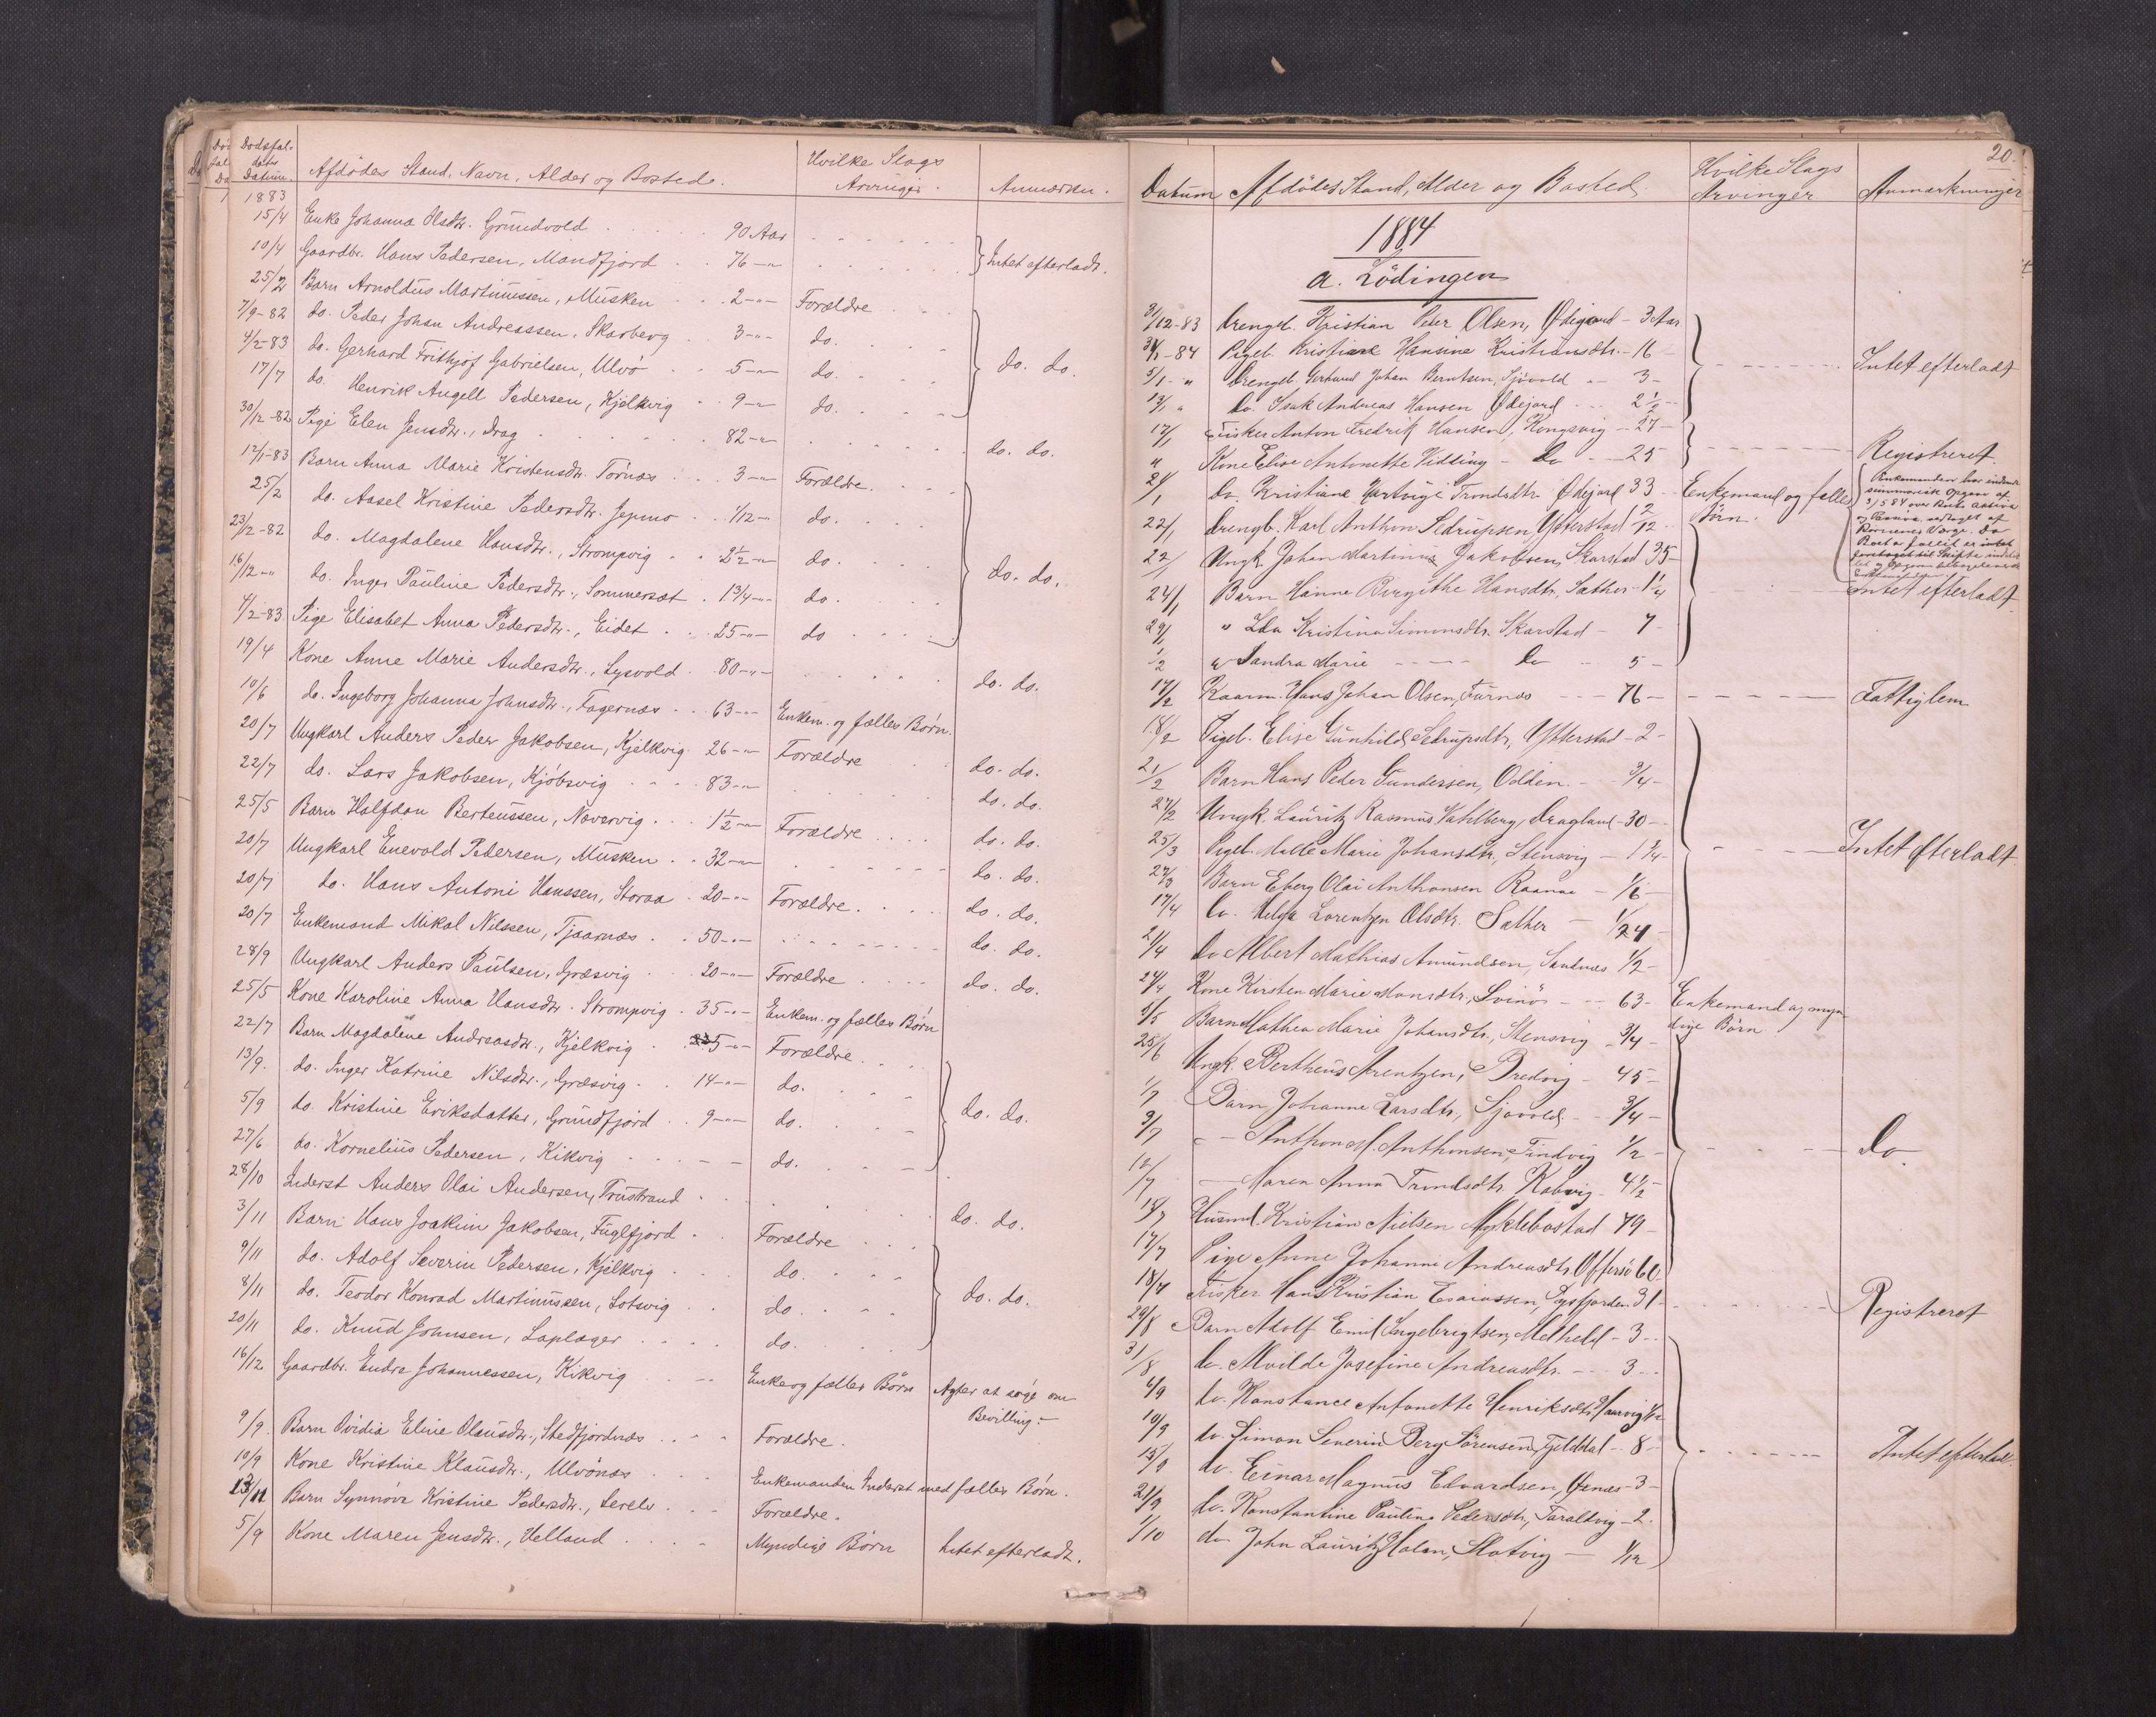 Dødsfal-
dets
Datum.
Afdödes Stand, Navn, Alder og Bosted.
Hvilke Slags
Arvinger.
Anmærkn.
1883
15/4 Enke Johanna Olsdtr. Grundvold 90 Aar
10/4 Gaardbr. Hans Pedersen, Mandfjord 76 -"- } Intet efterladt.
25/2 Barn Arnoldus Martinussen, Musken 2 -"- Forældre
7/9-82 do. Peder Johan Andreassen, Skarberg 3 -"- do.
4/2-83 do. Gerhard Frithjof Gabrielsen, Ulvö 5 -"- do. } do. do.
17/7 do. Henrik Angell Pedersen, Kjelkvig 9 -"- do.
30/12-82 Pige Elen Jensdtr., Drag 82 -"- do. do.
12/1-83 Barn Anna Marie Kristensdtr. Törnæs 3 -"- Forældre.
25/2 do. Aasel Kristine Pedersdtr. Jepmo 1/12 -"- do.
23/2-82 do. Magdalene Hansdtr., Strompvig 2 1/2 -"- do. } do. do.
16/12 -"- do. Inger Pauline Pedersdtr., Sommerset 1 3/4 -"- do.
4/2-83 Pige Elisabet Anna Pedersdtr., Eidet 25 -"- do
19/4 Kone Anne Marie Andersdtr., Lysvold 80 -"- do. do.
10/6 do. Ingeborg Johanna Johnsdtr., Fagernæs 63 -"- Enkem. og fælles Børn.
20/7 Ungkarl Anders Peder Jakobsen, Kjelkvig 26 -"- Forældre do. do.
22/7 do. Lars Jakobsen, Kjöbsvig 83 -"- do. do.
25/5 Barn Halfdan Berteussen, Naververvig 1 1/2 -"- Forældre do. do.
20/7 Ungkarl Enevold Pedersen, Musken 32 -"- do. do.
20/7 do. Hans Antoni Hanssen, Storaa 20 -"- Forældre. do. do.
20/7 Enkemand Mikal Nilssen, Tjaarnæs 50 -"- do. do.
28/9 Ungkarl Anders Paulsen, Græsvig 20 -"- Forældre do. do.
25/5 Kone Karoline Anna Hansdtr. Strompvig 35 -"- Enkem. og fælles Børn
22/7 Barn Magdalene Andreasdtr., Kjelkvig 5 -"- Forældre.
13/9. do. Inger Katrine Nilsdtr., Græsvig 14 -"- do.
5/9 do. Kristine Eriksdatter, Grundfjord 9 -"- do. } do. do.
27/6 do. Kornelius Pedersen, Kikvig do.
28/10 Inderst Anders Olai Andersen, Trustrand do. do.
3/11 Barn Hans Joakim Jakobsen, Fuglfjord Forældre
9/11 do. Adolf Severin Pedersen, Kjelkvig do.
8/11 do. Teodor Konrad Martinussen, Lotsvig do. } do. do.
20/11 do. Knud Johnsen, Laplæger do.
16/12 Gaardbr. Endre Johannessen, Kikvig Enke og fælles Børn Agter at søge om
Bevilling.
9/9. Barn Ovidia Eline Olausdtr., Stedfjordnæs Forældre.
10/9 Kone Kristine Klausdtr., Ulvönæs Enkemanden Inderst med fælles Børn.
13/11 Barn Synnöve Kristine Pedersdtr., Forældre.
5/9 Kone Maren Jensdtr., Helland Myndige Börn Intet efterladt.
20.
Datum Afdödes Stand, Alder og Bosted. Hvilke Slags
Arvinger Anmærkninger
1884
a. Lödingen
31/12-83 Drengeb. Kristian Peter Olsen, Ødegaard - 3 Aar
1-84 Pigeb. Kristiane Hansine Kristiansdtr. - 16
3/1 - " Drengeb. Gerhard Johan Berntsen, Sjövold 3 - Intet efterladt
13/1 " do. Isak Andreas Hansen Ødejord 2 1/2
17/1 Fisker Anton Fredrik Hansen, Kongsvig - 27 -
" Kone Elise Antonette Vidding - do 25 Registreret.
21/1 do. Kristiane Hartvige Trondsdtr. Ødejord 33 Enkemand og fælles
Børn.
Enkemanden har indsendt
summarisk Opgave af
3/5 84 over Boets activa
og Passiva, vedtaget af
Børnenes Værge. Da
Boet er fallit er intet
foretaget til Skifte
22/1 Drengb. Karl Anthon Sedrupsen Ytterstad 2/12
22/1 Ungk. Johan Martinus Jakobsen, Skarstad 35 -
24/1 Barn Hanne Birgithe Hansdtr. Sæther 1 1/4 Intet efterladt.
29/1 " Lda Kristina Simonsdtr. Skarstad - 7 -
1/2 " Sandra Marie do 5 -
17/2 Kaarm. Hans Johan Olsen, Furnæs 76 - Fattiglem
18/2 Pigeb. Elise Gunhild Sedrupsdtr, Ytterstad - 2 -
21/2 Barn Hans Peder Gundersen, Odden. 3/4 -
27/2 Ungk. Lauritz Rasmus Vahlberg, Dragland - 30 -
25/3 Pigeb. Mette Marie Johansdtr., Stensvig - 1 3/4 - Intet efterladt.
27/3 Barn Eberg Olai Anthonsen Raanæ - 1/6 -
17/4 do. Helga Lorentzen Olsdtr. Sæther - 1/24 -
21/4 do Albert Mathias Amundsen, Sandnæs 1/2 -
24/4 Kone Kirsten Marie Monsdtr., Svinö 63 - Enkemand og myn-
dige Børn
5/5 Barn Mathea Marie Johansdtr., Stensvig - 3/4 -
25/6 Ungk. Bertheus Arentzen, Bredvig - 45 -
1/7 Barn Johanne Larsdtr, Sjövold 3/4 -
9/7 " - Anthon M. Anthonsen, Findvig 1/2 - do.
12/7 - Maren Anna Trondsdtr. Kobvig - 4 1/2 -
15/7 Husmd. Kristian Nielsen Myklebostad 79 -
17/7 Pige Anne Johanne Andreasdtr. Offersö 60.
18/7 Fisker Hans Kristian Esaiassen, Tysfjorden 31 - Registreret
29/8 Barn Adolf Emil Ingebrigtsen, Melheld - 3 -
31/8 do. Alvilde Josefine Andreasdtr. 3
6/9 do. Konstance Antonette Henriksdtr,
10/9 do. Simon Severin Berg Sörensen, Fjelddal 8 -
15/9 do. Einar Magnus Edvardsen, Ørnæs - 3 - Intet efterladt.
21/9 do. Konstantine Pauline Pedersdtr, Taraldvig - 2.
1/10 do. John Lauritz Holan, Slotvig - 1/12